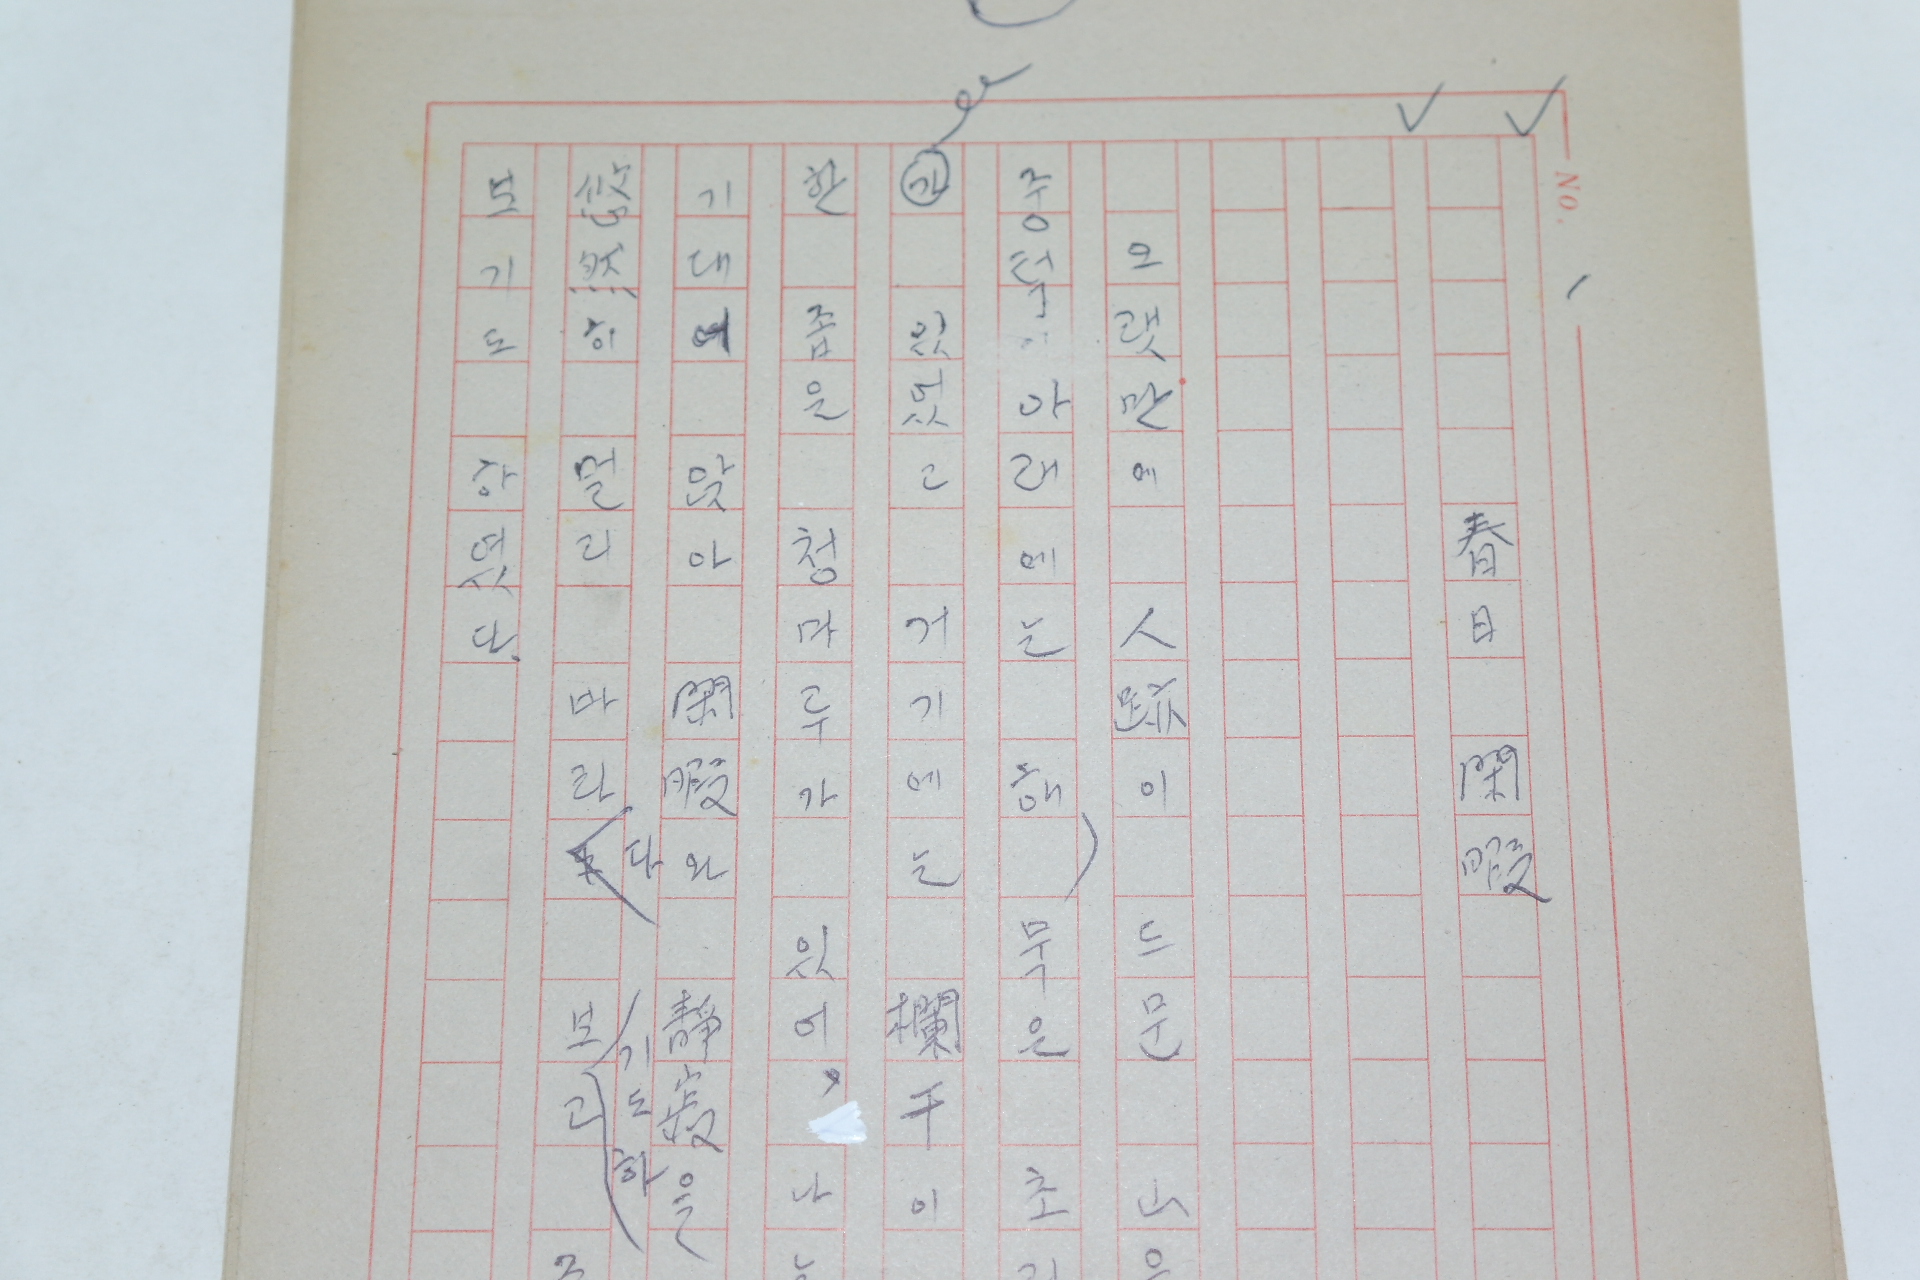 NO.
春日 閑暇
오랫만에 人跡이 드문 山은
중턱 아래에는 해 묵은 초
있었고 거기에는 欄干이
한 줌은 청마루가 있어, 나는
기대에 앉아 閑暇와 靜寂을
다 기도 하
悠然히 멀리 바라 보고
보기도 하였다.